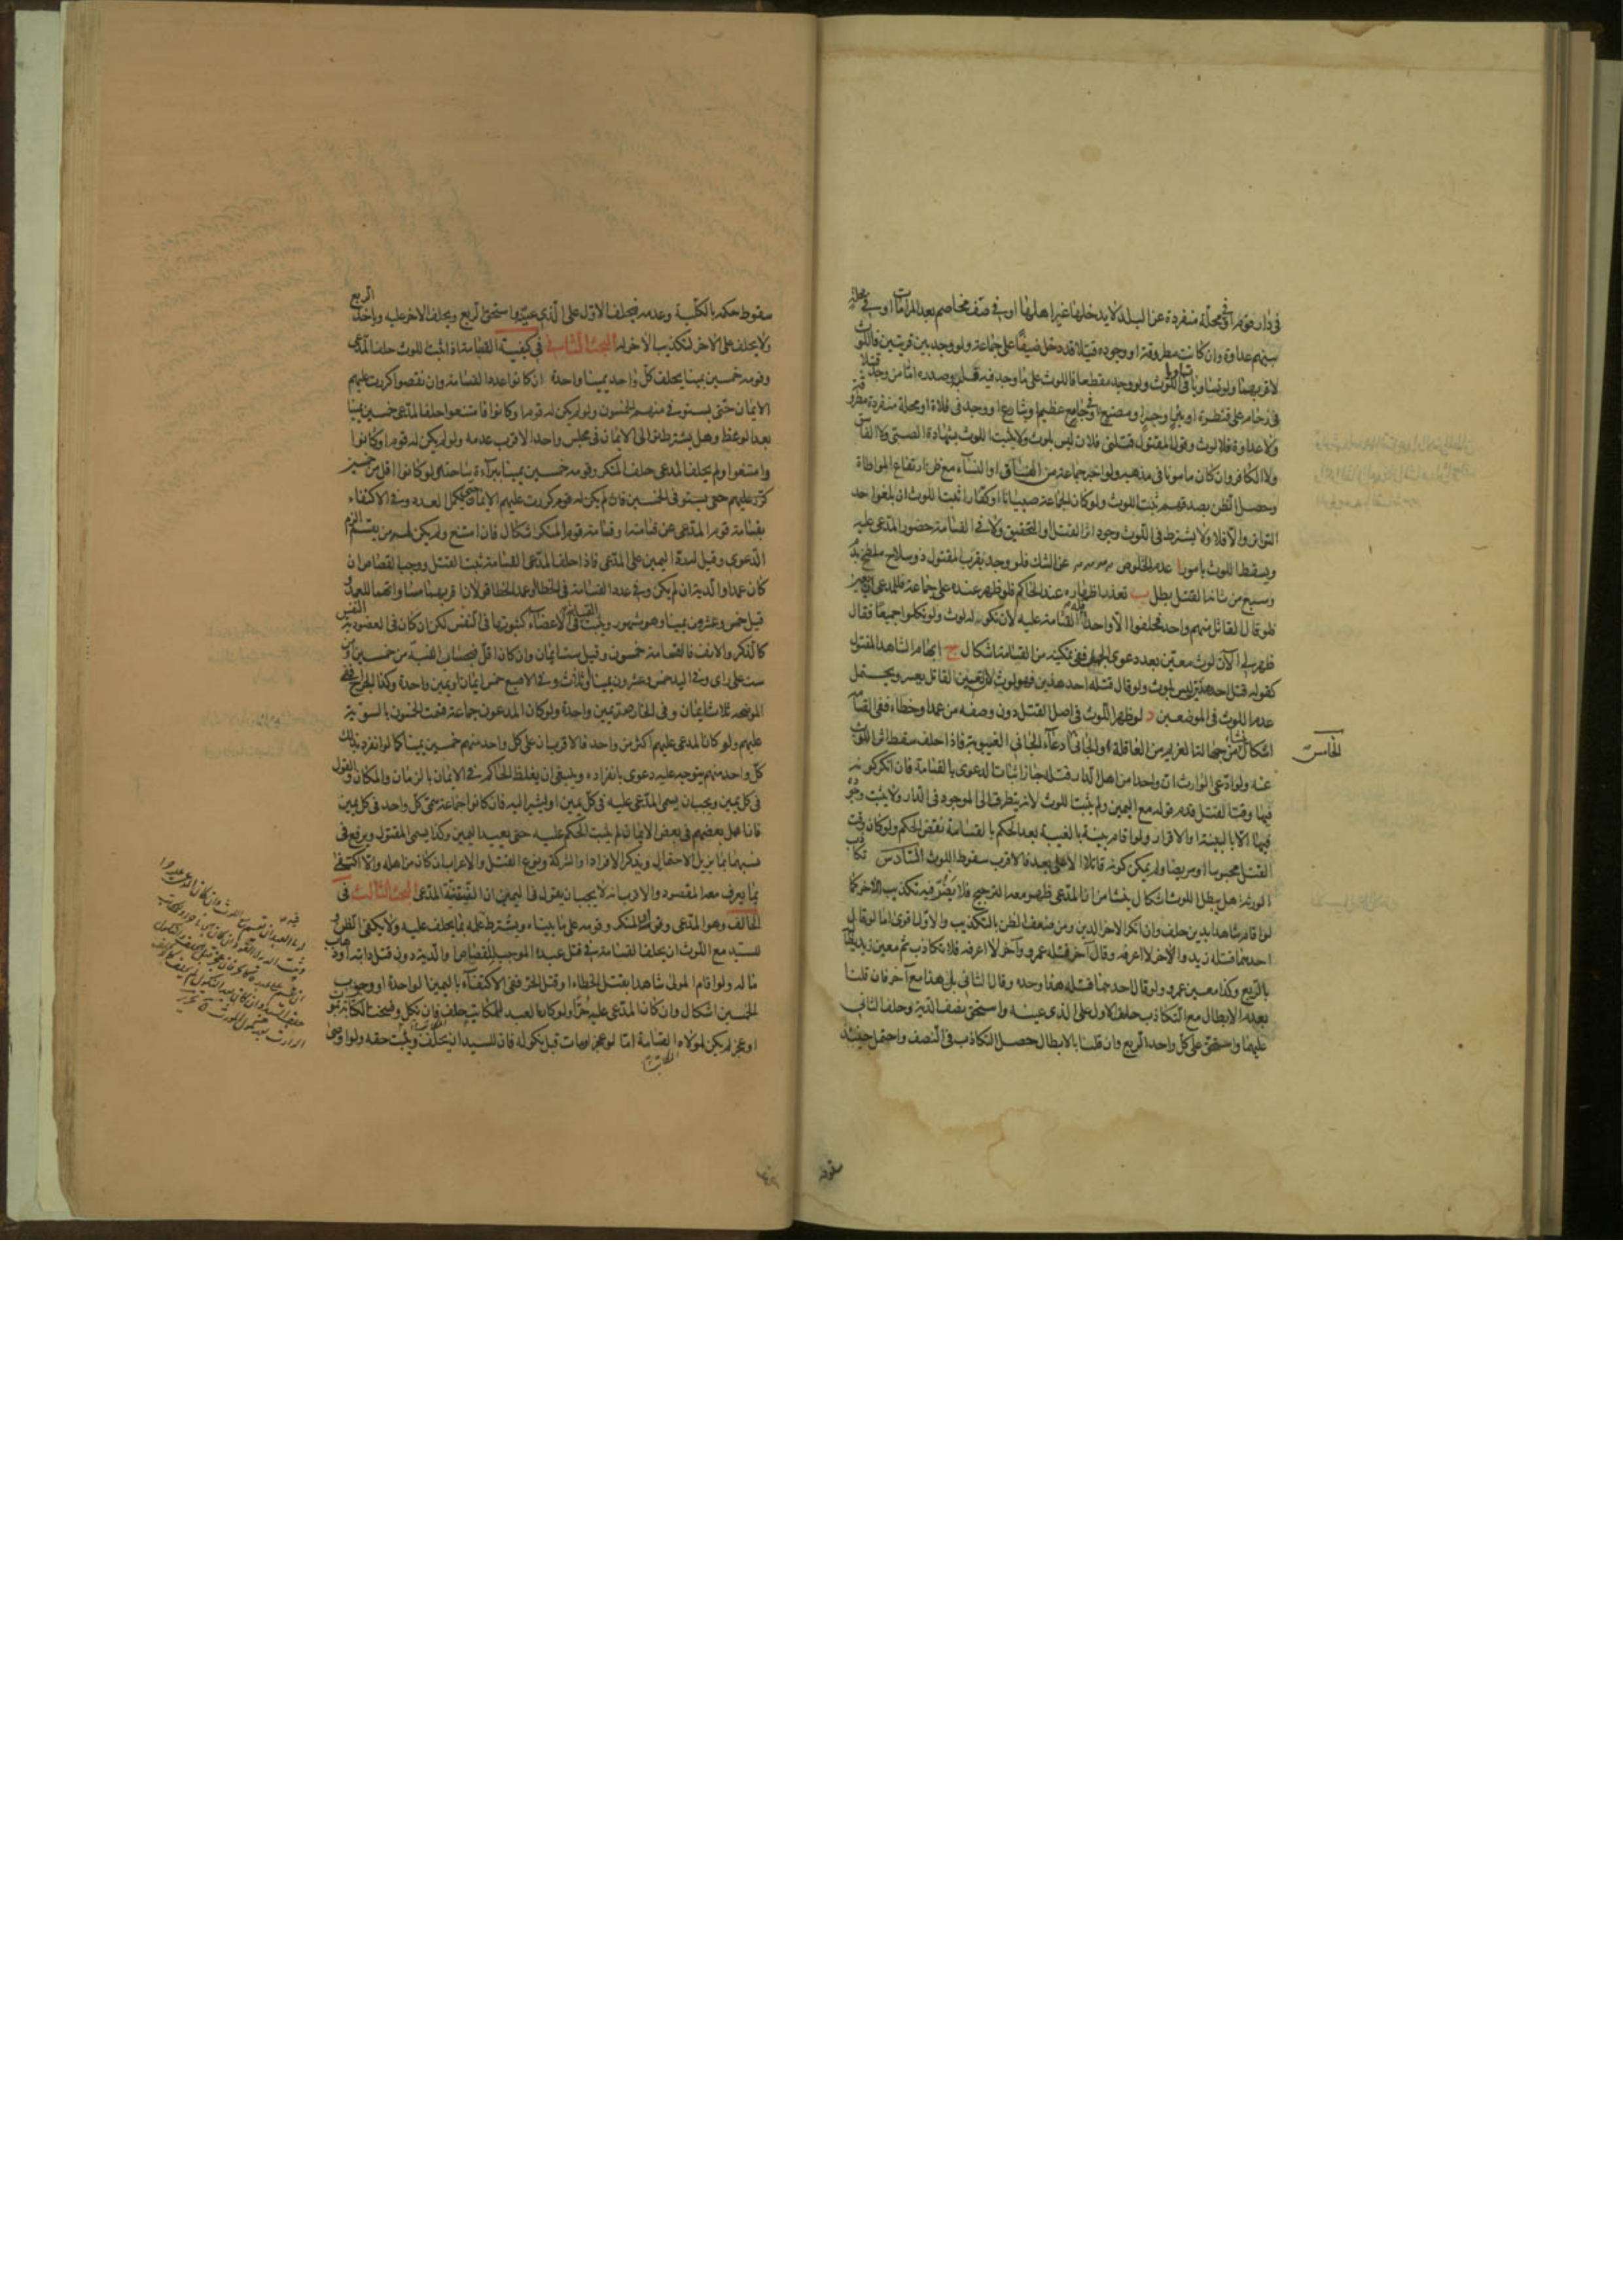 في دار قوم او في محلة منفردة عن البلد لا يدخلها غير اهلها او في صف مخاصم بعد المراماة او في محلة
بينهم عداوة وان كانت مطروقة او وجوده قتيلا قد دخل ضيفا على جماعة ولو وجد بين قريتين فاللوث
لاقربهما ولو تساوتا تساويا في اللوث ولو وجد مقطعا فاللوث على ما وجد فيه قلبه وصدره اما من وجد قتيلا
في زحام على قنطرة او بئر او جسر او مصنع او في جامع عظيم او شارع او وجد في فلاة او محلة منفردة مطروقة
ولا عداوة فلا لوث وقول المقتول قتلني فلان ليس بلوث ولا يثبت اللوث بشهادة الصبي ولا الفاسق
ولا الكافر وان كان مامونا في مذهبه ولو اخبر جماعة من الفساق او النساء مع ظن ارتفاع المواطاة
وحصل الظن بصدقهم ثبت اللوث ولو كان الجماعة صبيانا او كفارا ثبت اللوث ان بلغوا حد
التواتر والا فلا ولا يشترط في اللوث وجود اثر القتل والتخنيق ولا في القسامة حضور المدعى عليه
ويسقط اللوث بامور ا عدم الخلوص عن الشك فلو وجد بقرب المقتول ذو سلاح ملطخ بدم
وسبع من شانه القتل بطل ب تعذر اظهاره عند الحاكم فلو ظهر عنده على جماعة فللمدعي ان يعين
فلو قال القاتل منهم واحد فحلفوا الا واحدا فله القسامة عليه لان نكوله لوث ولو نكلوا جميعا فقال
ظهر لي الآن لوث معين بعد دعوى الجهل ففي تمكينه من القسامة اشكال ج ابهام الشاهد المقتول
كقوله قتل احد هذين ليس بلوث ولو قال قتله احد هذين فهو لوث لان تعيين القاتل يعسر ويحتمل
عدم اللوث في الموضعين د لو ظهر اللوث في اصل القتل دون وصفه من عمد او خطاء ففي القسامة
الخامس
اشكال ينشأ من جهالتنا لغريم من العاقلة او الجاني ادعاء الجاني الغيبوبة فاذا حلف سقط اثر اللوث
عنه ولو ادعى الوارث ان واحدا من اهل الدار قتله جاز اثبات الدعوى بالقسامة فان انكر كونه
فيها وقت القتل قدم قوله مع اليمين ولم يثبت اللوث لانه يتطرق الى الموجود في الدار ولا يثبت وجوده
فيها الا بالبينة او الاقرار ولو اقام بينة بالغيبة بعد الحكم بالقسامة نقض الحكم ولو كان وقت
القتل محبوسا او مريضا ولم يمكن كونه قاتلا الا على بعد فالاقرب سقوط اللوث السادس تكاذب
الورثة هل يبطل اللوث اشكال ينشأ من ان المدعي ظهر معه الترجيح فلا يضر فيه تكذيب الآخر كما
لو اقام شاهدا بدين حلف وان انكر الاخر الدين ومن ضعف الظن بالتكذيب والاول اقوى اما لو قال
احدهما قتله زيد والآخر لا اعرفه وقال آخر قتله عمرو وآخر لا اعرفه فلا تكاذب ثم معين زيد يطالبه
بالربع وكذا معين عمرو ولو قال احدهما قتله هذا وحده وقال الثاني بل هذا مع آخر فان قلنا
بعدم الابطال مع التكاذب حلف الاول على الذي عينه واستحق نصف الدية وحلف الثاني
عليهما واستحق على كل واحد الربع وان قلنا بالابطال حصل التكاذب في النصف واحتمل حينئذ
سقوط
سقوط حكمه بالكلية وعدمه فيحلف الاول على الذي عينه ويستحق الربع ويحلف الاخر عليه وياخذ الربع
ولا يحلف على الاخر لتكذيب الاخر له البحث الثاني في كيفية القسامة اذا ثبت اللوث حلف المدعي
وقومه خمسين يمينا يحلف كل واحد يمينا واحدة ان كانوا عدد القسامة وان نقصوا كررت عليهم
الايمان حتى يستوفي منهم الخمسون ولو لم يكن له قوم او كانوا فامتنعوا حلف المدعي خمسين يمينا
بعد الوعظ وهل يشترط توالي الايمان في مجلس واحد الاقرب عدمه ولو لم يكن له قوم او كانوا
وامتنعوا ولم يحلف المدعي حلف المنكر وقومه خمسين يمينا ببراءة ساحته ولو كانوا اقل من خمسين
كرر عليهم حتى يستوفي الخمسين فان لم يكن له قوم كررت عليهم الايمان حتى يكمل العدد وفي الاكتفاء
بقسامة قوم المدعي عن قسامته او قسامة قوم المنكر اشكال فان امتنع ولم يكن له من يقسم الزم
الدعوى وقيل له رد اليمين على المدعي فاذا حلف المدعي القسامة ثبت القتل ووجب القصاص ان
كان عمدا والدية ان لم يكن وفي عدد القسامة في الخطاء وعمد الخطا قولان اقربهما مساواتهما للعمد و
قيل خمس وعشرون يمينا وهو مشهور ويثبت القسامة في الاعضاء كثبوتها في النفس لكن ان كان في العضو دية النفس
كالذكر والانف فالقسامة خمسون وقيل ست ايمان وان كان اقل فبحساب النسبة من خمسين او من
ست على راى وفي اليد خمس وعشرون يمينا او ثلاث وفي الاصبع خمس ايمان او يمين واحدة وكذا الجراح ففي
الموضحة ثلاث ايمان وفي الحارصة يمين واحدة ولو كان المدعون جماعة قسمت الخمسون بالسوية
عليهم ولو كان المدعى عليهم اكثر من واحد فالاقرب ان على كل واحد منهم خمسين يمينا كما لو انفرد لان
كل واحد منهم يتوجه عليه دعوى بانفراده وينبغي ان يغلظ الحاكم في الايمان بالزمان والمكان والقول
في كل يمين ويجب ان يسمي المدعى عليه في كل يمين او يشير اليه فان كانوا جماعة سمي كل واحد في كل يمين
فان اهمل بعضهم في بعض الايمان لم يثبت الحكم عليه حتى يعيد اليمين وكذا يسمي المقتول ويرفع في
نسبهما بما يزيل الاحتمال ويذكر الانفراد او الشركة ونوع القتل والاعراب ان كان من اهله والا اكتفي
بما يعرف معه المقصود والاقرب انه لا يجب ان يقول في اليمين ان النية نية المدعي البحث الثالث في
الحالف وهو المدعي وقومه او المنكر وقومه على ما بيناه ويشترط علمه بما يحلف عليه ولا يكفي الظن و
للسيد مع اللوث ان يحلف القسامة في قتل عبده الموجب للقصاص او الدية دون قتل دابته او ذهاب
ماله ولو اقام المولى شاهدا بقتل الخطاء او قتل الحر ففي الاكتفاء باليمين الواحدة او وجوب
الخمسين اشكال وان كان المدعى عليه حرا ولو كان العبد للمكاتب حلف فان نكل وفسخت الكتابة بموت
او عجز لم يكن لمولاه القسامة اما لو عجز او مات قبل نكوله فان للسيد ان يحلف ويثبت حقه ولو اوصى
المكاتب